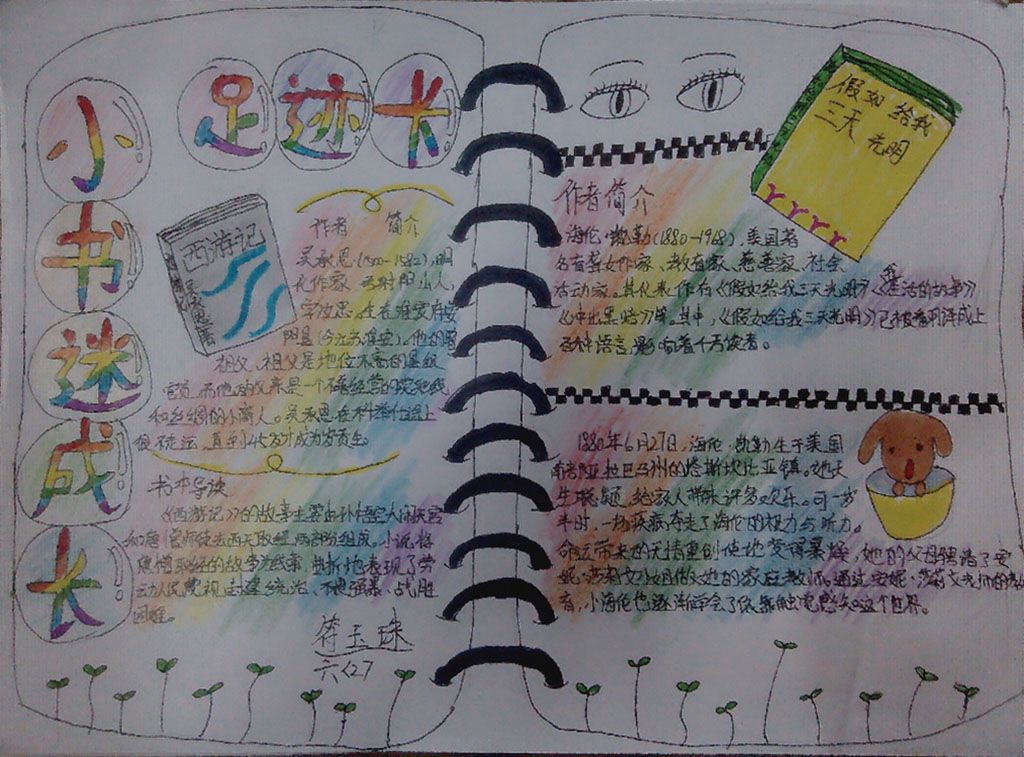 小足迹卡
小书迷成长
西游记
作者 简介
吴承恩(1500-1582),明
代作家 号射阳山人,
字汝忠。生在淮安府
阳县(今江苏淮安)。他的
祖父、祖父是地位不高的县级
官员,而他的父亲是一个不善经营的卖彩线
和丝绸的小商人。吴承恩在科举仕途上
很不走运,直到46岁才成为岁贡生。
书本导读
《西游记》的故事主要由孙悟空大闹天宫
和唐僧师徒去西天取经两部分组成。小说将
的故事,曲折地表现了劳
动人民蔑视封建统治、不畏强暴、战胜
困难。
符玉珠
六<27
假如给我
三天光明
作者简介
海伦·凯勒(1880-1968),美国著
名盲聋女作家、教育家、慈善家、社会
活动家。其代表作有《假如给我三天光明》《我生活的故事》
《冲出黑暗》等。其中,《假如给我三天光明》已被翻译成上
百种语言,影响着千万读者。
1880年6月27日,海伦·凯勒生于美国
南部亚拉巴马州的塔斯坎比亚镇。她天
生聪颖,给家人带来许多欢乐。可一岁
半时,一场疾病夺走了海伦的视力与听力。
命运带来的无情重创使她变得暴躁,她的父母聘请了安
妮·莎莉文小姐做她的家庭教师。通过安妮·莎莉文老师的教
育,小海伦也逐渐学会了依靠触觉感知这个世界。